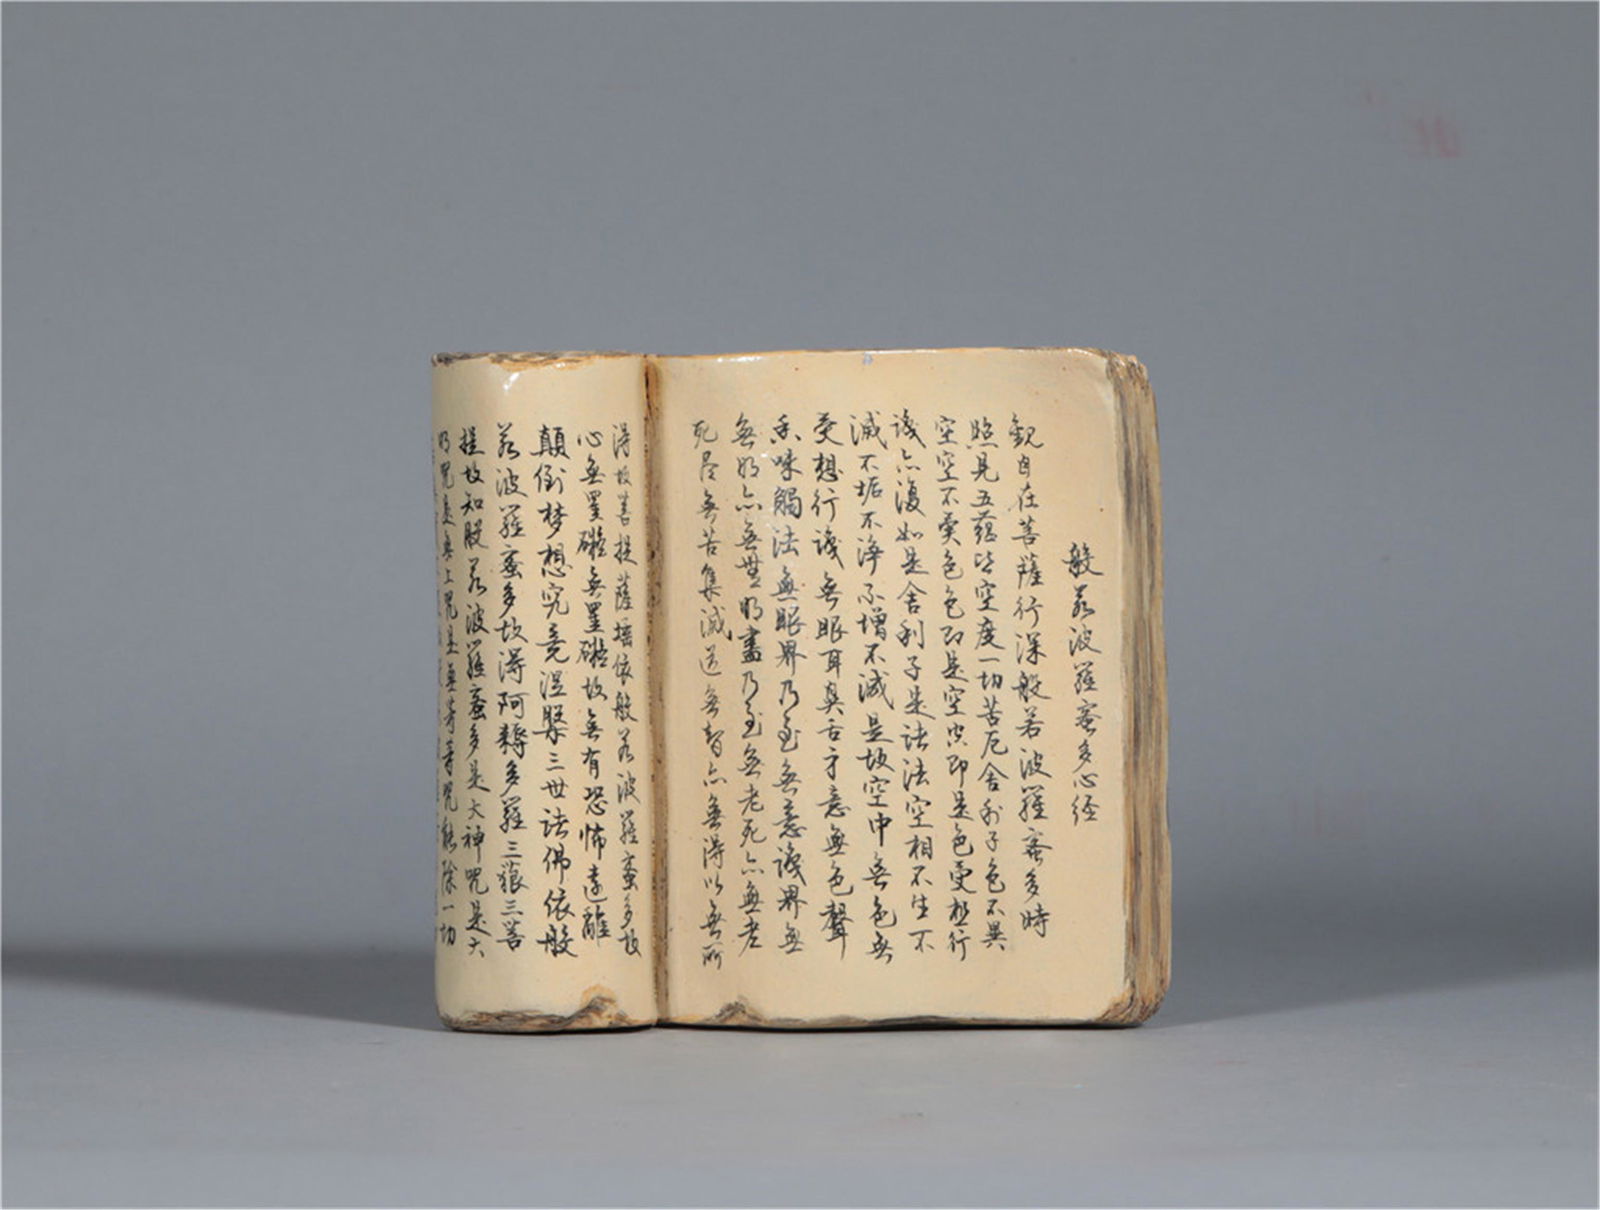 般若波羅蜜多心经
観自在菩薩行深般若波羅蜜多時
照見五蕴皆空度一切苦厄舍利子色不異
空空不異色色即是空空即是色受想行
識亦復如是舍利子是诸法空相不生不
滅不垢不净不增不减是故空中無色無
受想行識無眼耳鼻舌身意無色聲
香味觸法無眼界乃至無意識界無
無明亦無無明盡乃至無老死亦無老
死尽無苦集滅道無智亦無得以無所
得故菩提薩埵依般若波羅蜜多故
心無罣礙無罣礙故無有恐怖遠離
顛倒梦想究竟涅槃三世诸佛依般
若波羅蜜多故得阿耨多羅三藐三菩
提故知般若波羅蜜多是大神咒是大
明咒是無上咒是無等等咒能除一切